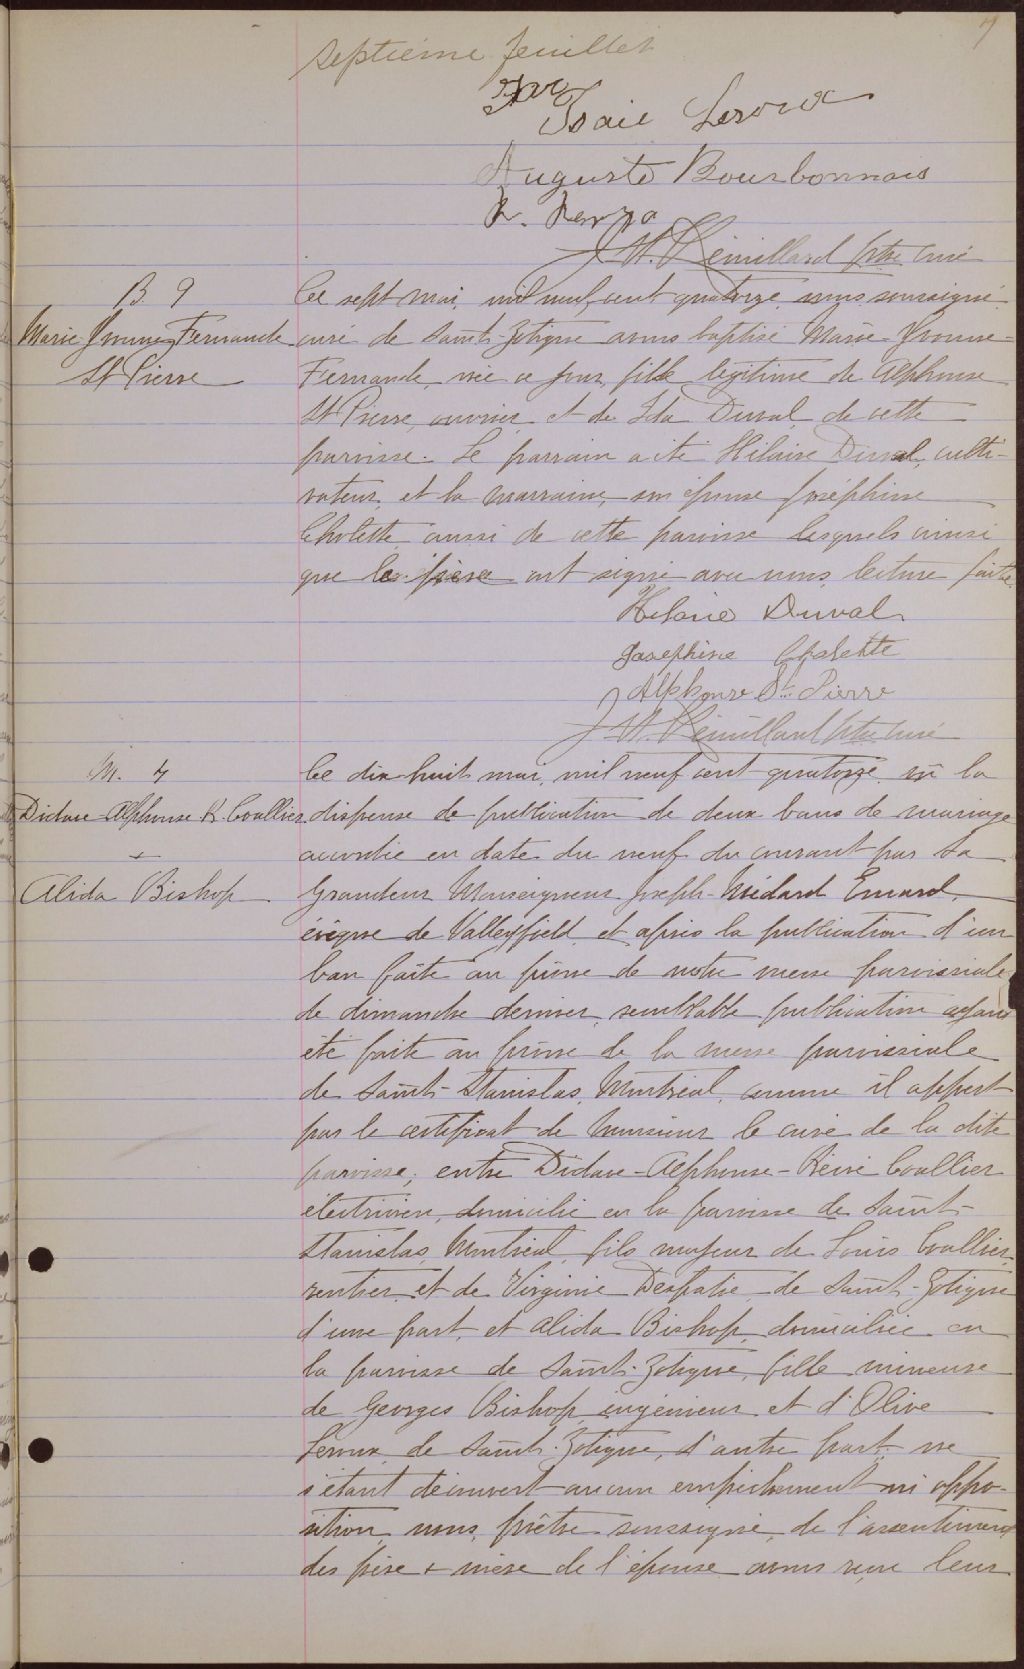 7
septième feuillet
Isaie Leroux
Auguste Bourbonnais
J. A. Rémillard ptre curé
B. 9
Marie Yvonne Fernande
St Pierre
Ce sept mai, mil neuf cent quatorze, nous soussigné,
curé de Saint-Zotique avons baptisé Marie-Yvonne-
Fernande, née ce jour, fille légitime de Alphonse
St Pierre, ouvrier, et de Ida Duval, de cette
paroisse. Le parrain a été Hilaire Duval, culti-
vateur, et la marraine, son épouse Joséphine
Cholette, aussi de cette paroisse lesquels ainsi
que le père ont signé avec nous, lecture faite.
Hilaire Duval
Josephine Cholette
Alphonse St. Pierre
J. A. Rémillard ptre curé
M. 4
Didace Alphonse R. Coullier
+
Alida Bishop
Ce dix-huit mai, mil neuf cent quatorze, vu la
dispense de publication de deux bans de mariage
accordée en date du neuf du courant par Sa
Grandeur Monseigneur Joseph-Médard Emard,
évêque de Valleyfield, et après la publication d'un
ban faite au prône de notre messe paroissiale
de dimanche dernier, semblable publication ayant
été faite au prône de la messe paroissiale
de Saint-Stanislas, Montréal, comme il appert
par le certificat de monsieur le curé de la dite
paroisse; entre Didace-Alphonse-Réné Coullier
électricien, domicilié en la paroisse de Saint-
Stanislas, Montréal, fils majeur de Louis Coullier,
rentier, et de Virginie Despatie, de Saint-Zotique
d'une part, et Alida Bishop, domiciliée en
la paroisse de Saint-Zotique, fille mineure
de Georges Bishop, ingénieur et d'Olive
Leroux, de Saint-Zotique, d'autre part; ne
s'étant découvert aucun empêchement ni oppo-
sition, nous, prêtre soussigné, de l'assentiment
des père & mère de l'épouse avons reçu leur